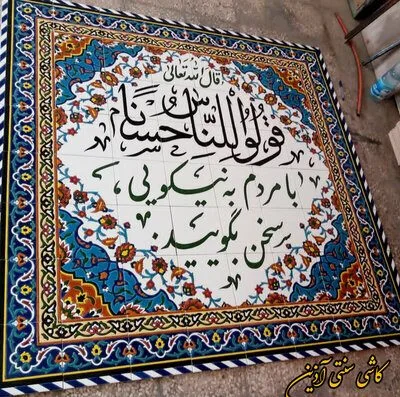 قال الله تعالی
قولوا للناس حسنا
با مردم به نیکویی،
سخن بگویید.
کاشی سنتی آذین